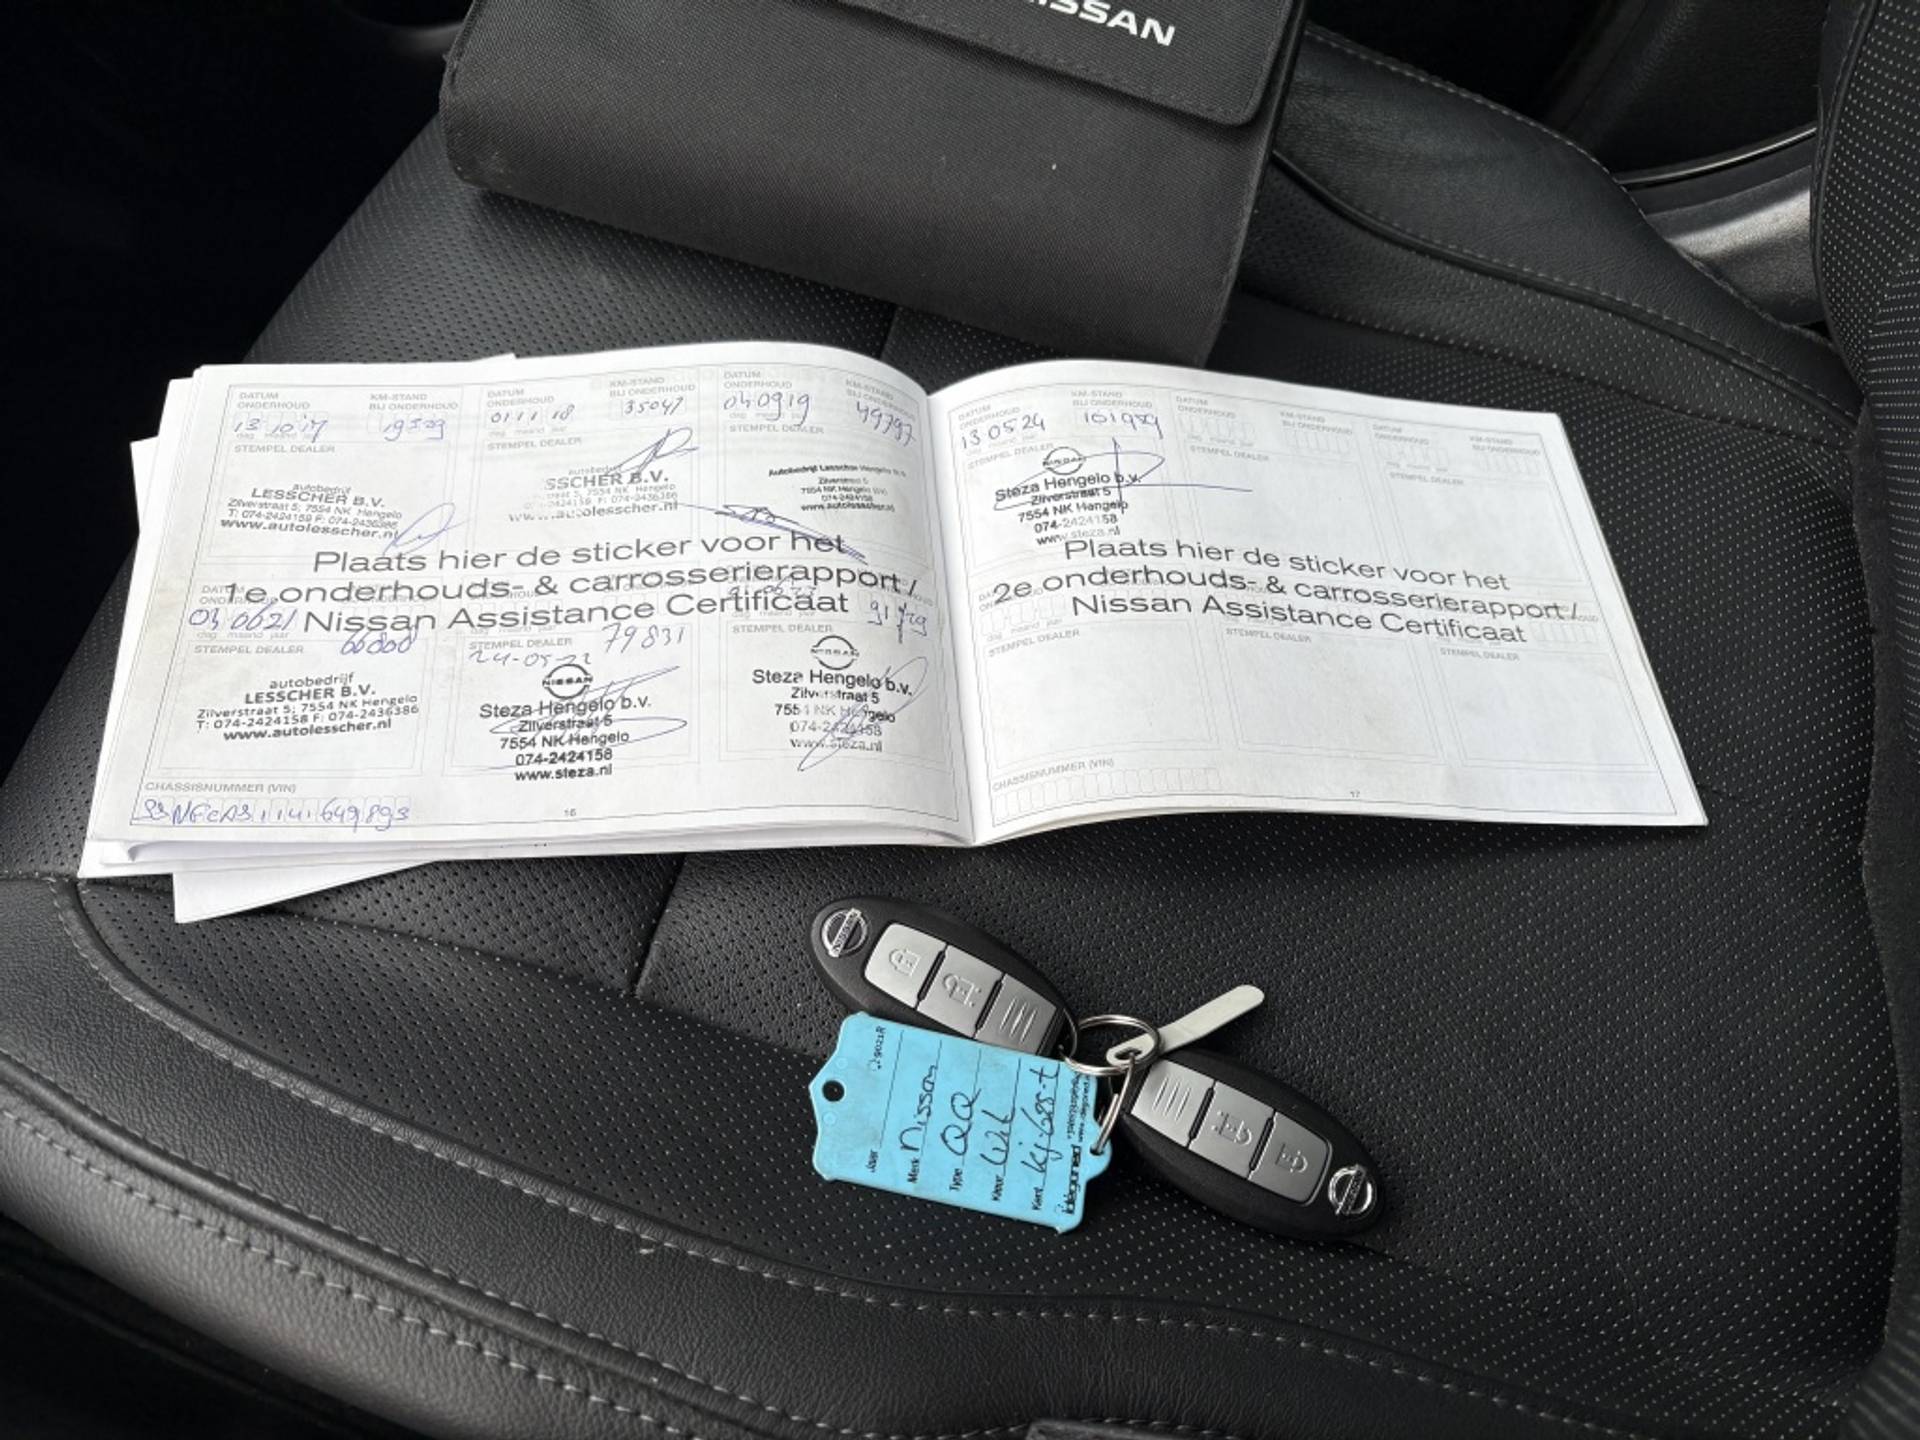 NISSAN
DATUM ONDERHOUD
KM-STAND BIJ ONDERHOUD
13 10 17
19509
dag maand jaar
STEMPEL DEALER
autobedrijf
LESSCHER B.V.
Zilverstraat 5; 7554 NK Hengelo
T: 074-2424159 F: 074-2436386
www.autolesscher.nl
DATUM ONDERHOUD
KM-STAND BIJ ONDERHOUD
01 11 18
35047
dag maand jaar
STEMPEL DEALER
SSCHER B.V.
DATUM ONDERHOUD
KM-STAND BIJ ONDERHOUD
04 09 19
49797
STEMPEL DEALER
Autobedrijf Lesscher Hengelo B.V.
Zilverstraat 5
7554 NK Hengelo
074-2424158
www.autolesscher.nl
Plaats hier de sticker voor het
1e onderhouds- & carrosserierapport /
Nissan Assistance Certificaat
66800
dag maand jaar
STEMPEL DEALER
autobedrijf
LESSCHER B.V.
Zilverstraat 5; 7554 NK Hengelo
T: 074-2424158 F: 074-2436386
www.autolesscher.nl
79831
STEMPEL DEALER
24-05-22
NISSAN
Steza Hengelo b.v.
Zilverstraat 5
7554 NK Hengelo
074-2424158
www.steza.nl
STEMPEL DEALER
NISSAN
Steza Hengelo b.v.
Zilverstraat 5
7554 NK Hengelo
074-2424158
www.steza.nl
CHASSISNUMMER (VIN)
16
DATUM ONDERHOUD
KM-STAND BIJ ONDERHOUD
13 05 24
101959
dag maand jaar
STEMPEL DEALER
NISSAN
Steza Hengelo b.v.
Zilverstraat 5
7554 NK Hengelo
074-2424158
www.steza.nl
DATUM ONDERHOUD
KM-STAND BIJ ONDERHOUD
STEMPEL DEALER
DATUM ONDERHOUD
KM-STAND BIJ ONDERHOUD
STEMPEL DEALER
Plaats hier de sticker voor het
2e onderhouds- & carrosserierapport /
Nissan Assistance Certificaat
STEMPEL DEALER
STEMPEL DEALER
STEMPEL DEALER
CHASSISNUMMER (VIN)
17
NISSAN
Jaar
Merk Nissan
Type QQ
Kleur Wit
Kent. kj-685-t
NISSAN